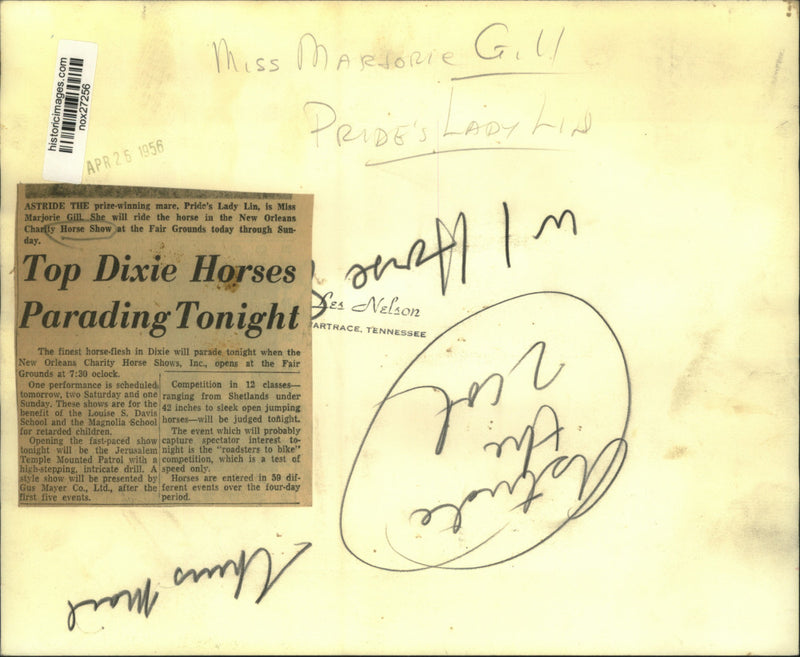 Miss Marjorie Gill
Pride's Lady Lin
historicimages.com
nox27256
APR 25 1956
ASTRIDE THE prize-winning mare, Pride's Lady Lin, is Miss
Marjorie Gill. She will ride the horse in the New Orleans
Charity Horse Show at the Fair Grounds today through Sun-
day.
Top Dixie Horses
Parading Tonight
The finest horse-flesh in Dixie will parade tonight when the
New Orleans Charity Horse Shows, Inc., opens at the Fair
Grounds at 7:30 oclock.
One performance is scheduled
tomorrow, two Saturday and one
Sunday. These shows are for the
benefit of the Louise S. Davis
School and the Magnolia School
for retarded children.
Opening the fast-paced show
tonight will be the Jerusalem
Temple Mounted Patrol with a
high-stepping, intricate drill. A
style show will be presented by
Gus Mayer Co., Ltd., after the
first five events.
Competition in 12 classes—
ranging from Shetlands under
42 inches to sleek open jumping
horses—will be judged tonight.
The event which will probably
capture spectator interest to-
night is the "roadsters to bike"
competition, which is a test of
speed only.
Horses are entered in 39 dif-
ferent events over the four-day
period.
w/ Horse
Les Nelson
WARTRACE, TENNESSEE
2 col
Astride
the
Thurs